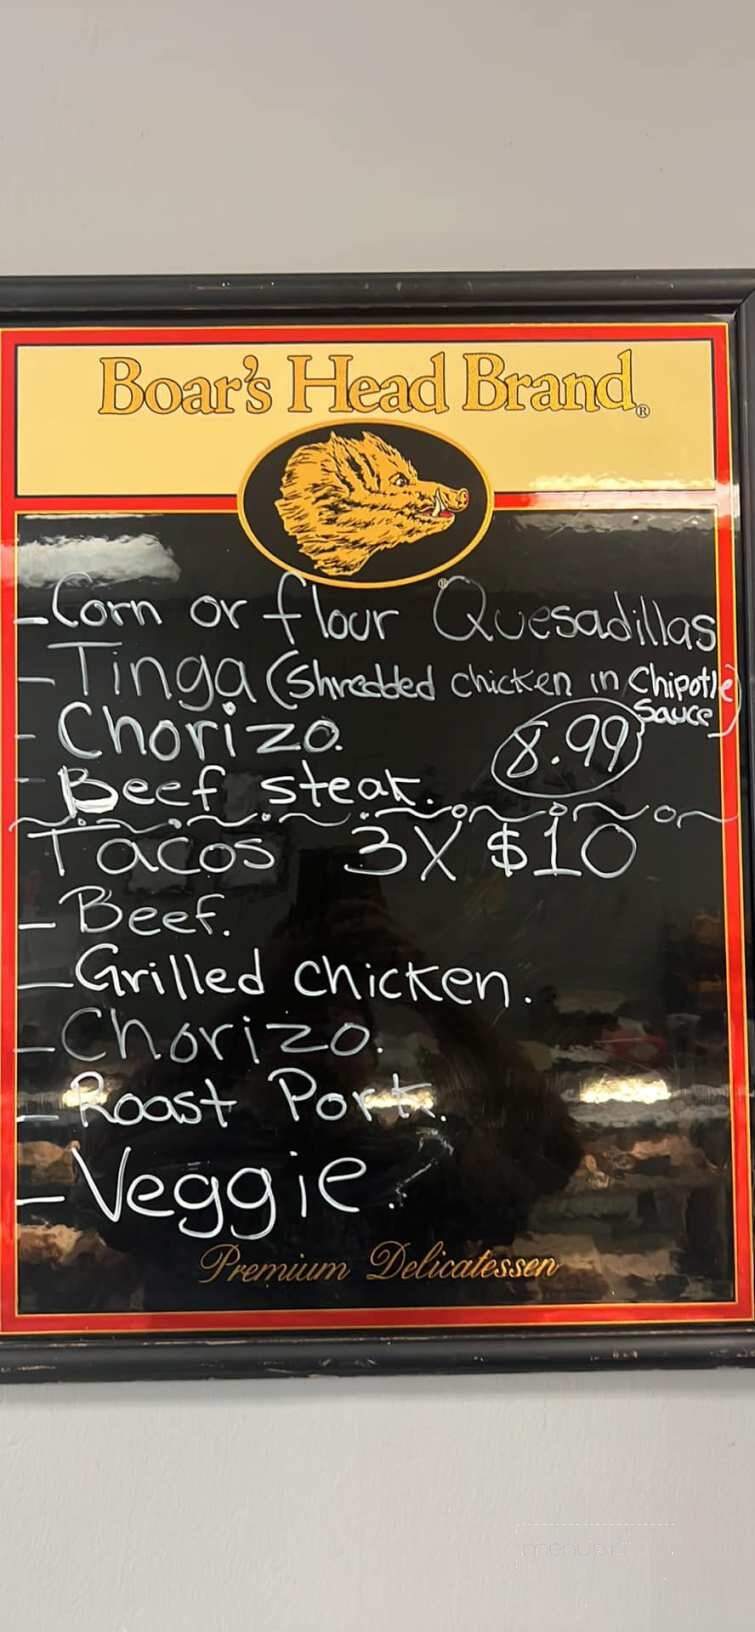 Boar's Head Brand®
®
- Corn or flour Quesadillas
- Tinga (Shredded chicken in Chipotle Sauce)
- Chorizo.
8.99
- Beef steak.
Tacos 3X $10
- Beef.
- Grilled chicken.
- Chorizo.
- Roast Pork.
- Veggie.
Premium Delicatessen